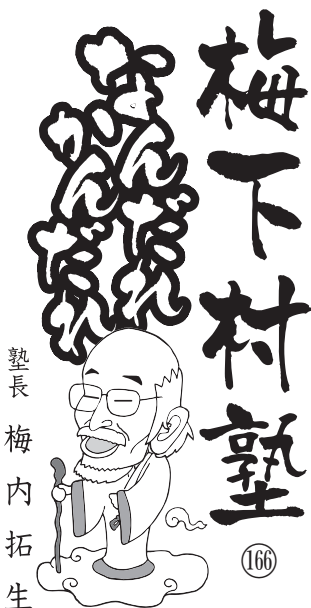 梅下村塾
166
なんだれ
かんだれ
塾長 梅内拓生